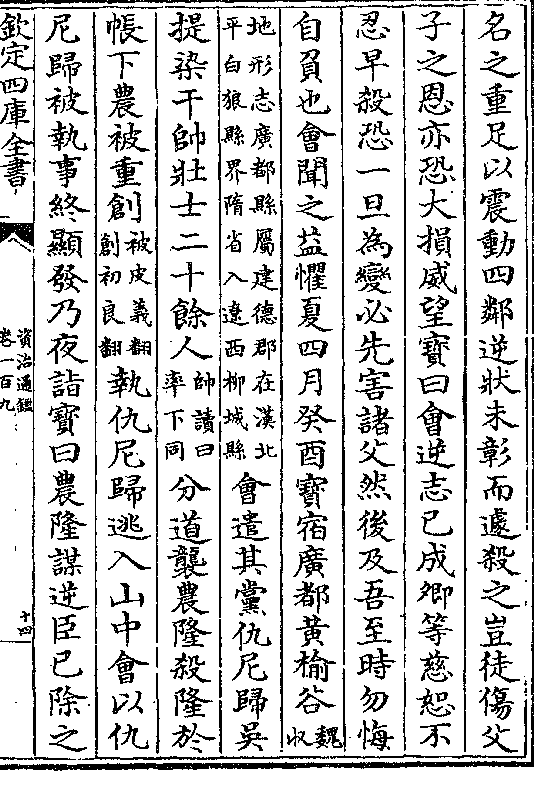 名之重足以震動四鄰逆狀未彰而遽殺之豈徒傷父
子之恩亦恐大損威望寶曰會逆志已成卿等慈恕不
忍早殺恐一旦為變必先害諸父然後及吾至時勿悔
自負也會聞之益懼夏四月癸酉寶宿廣都黄榆谷魏収
地形志廣都縣屬建德郡在漢北平白狼縣界隋省入遼西柳城縣會遣其黨仇尼歸吳
提染干帥壯士二十餘人帥讀曰率下同分道襲農隆殺隆於
帳下農被重創被皮義翻創初良翻執仇尼歸逃入山中會以仇
尼歸被執事終顯發乃夜詣寶曰農隆謀逆臣已除之
欽定四庫全書
資治通鑑
卷一百九
十四